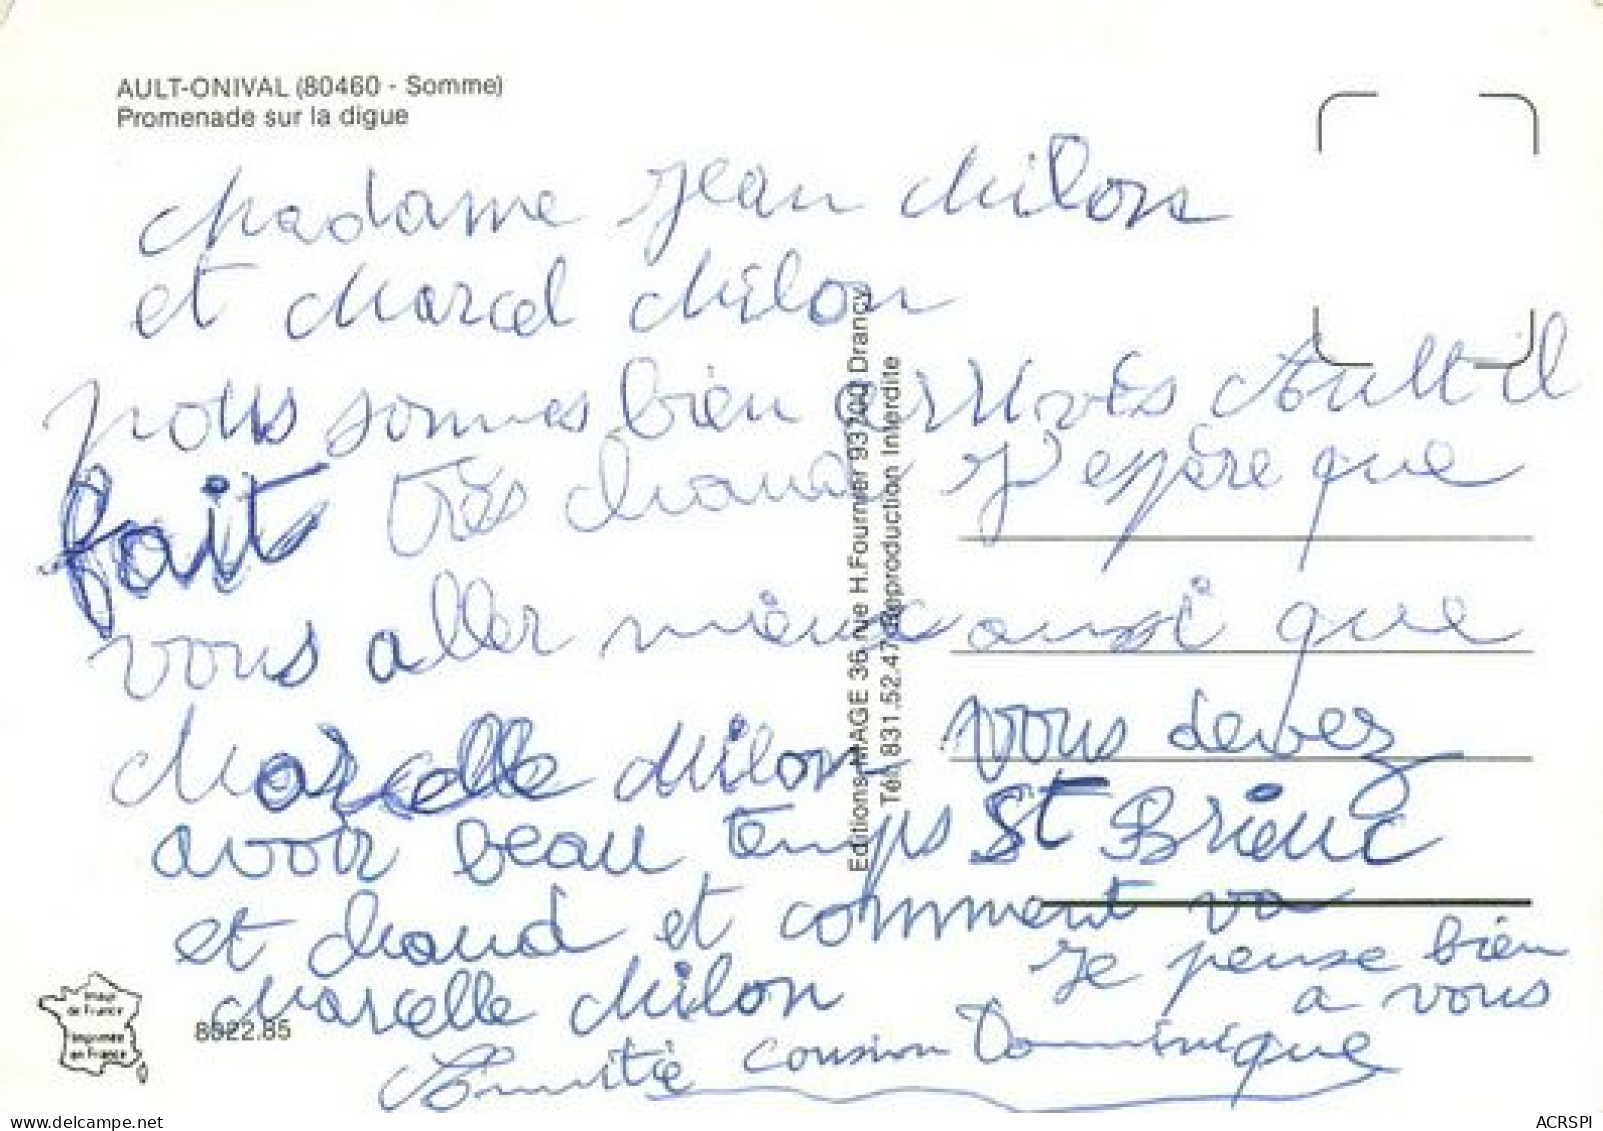 AULT-ONIVAL (80460 - Somme)
Promenade sur la digue
Madame Jean Milon
et Marcel Milon
nous sommes bien arrivés Ault il
fait très chaud J'espère que
vous aller mieux aussi que
Marcelle Milon vous devez
avoir beau temps St Brieuc
et chaud et comment va
Marcelle Milon Je pense bien
a vous
Amitié cousin Dominique
Editions IMAGE 36, rue H.Fournier 93700 Drancy
Tél. 831.52.47 Reproduction Interdite
de France
Imprimée
en France
8322.85
ACRSPI